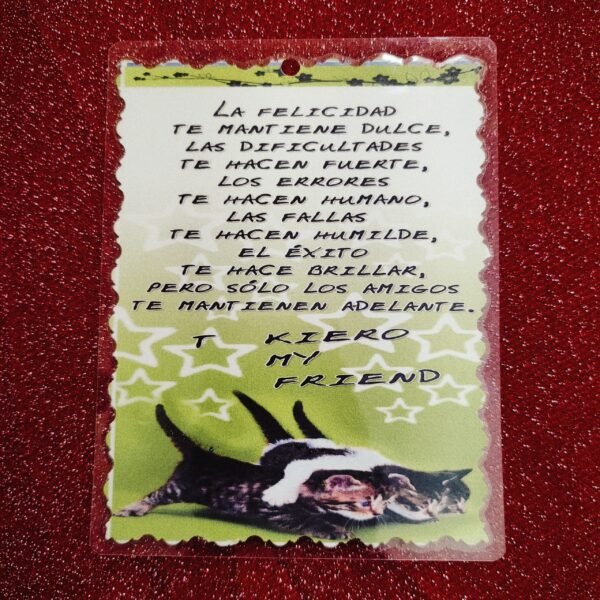 LA FELICIDAD
TE MANTIENE DULCE,
LAS DIFICULTADES
TE HACEN FUERTE,
LOS ERRORES
TE HACEN HUMANO,
LAS FALLAS
TE HACEN HUMILDE,
EL ÉXITO
TE HACE BRILLAR,
PERO SÓLO LOS AMIGOS
TE MANTIENEN ADELANTE.
T KIERO
MY
FRIEND